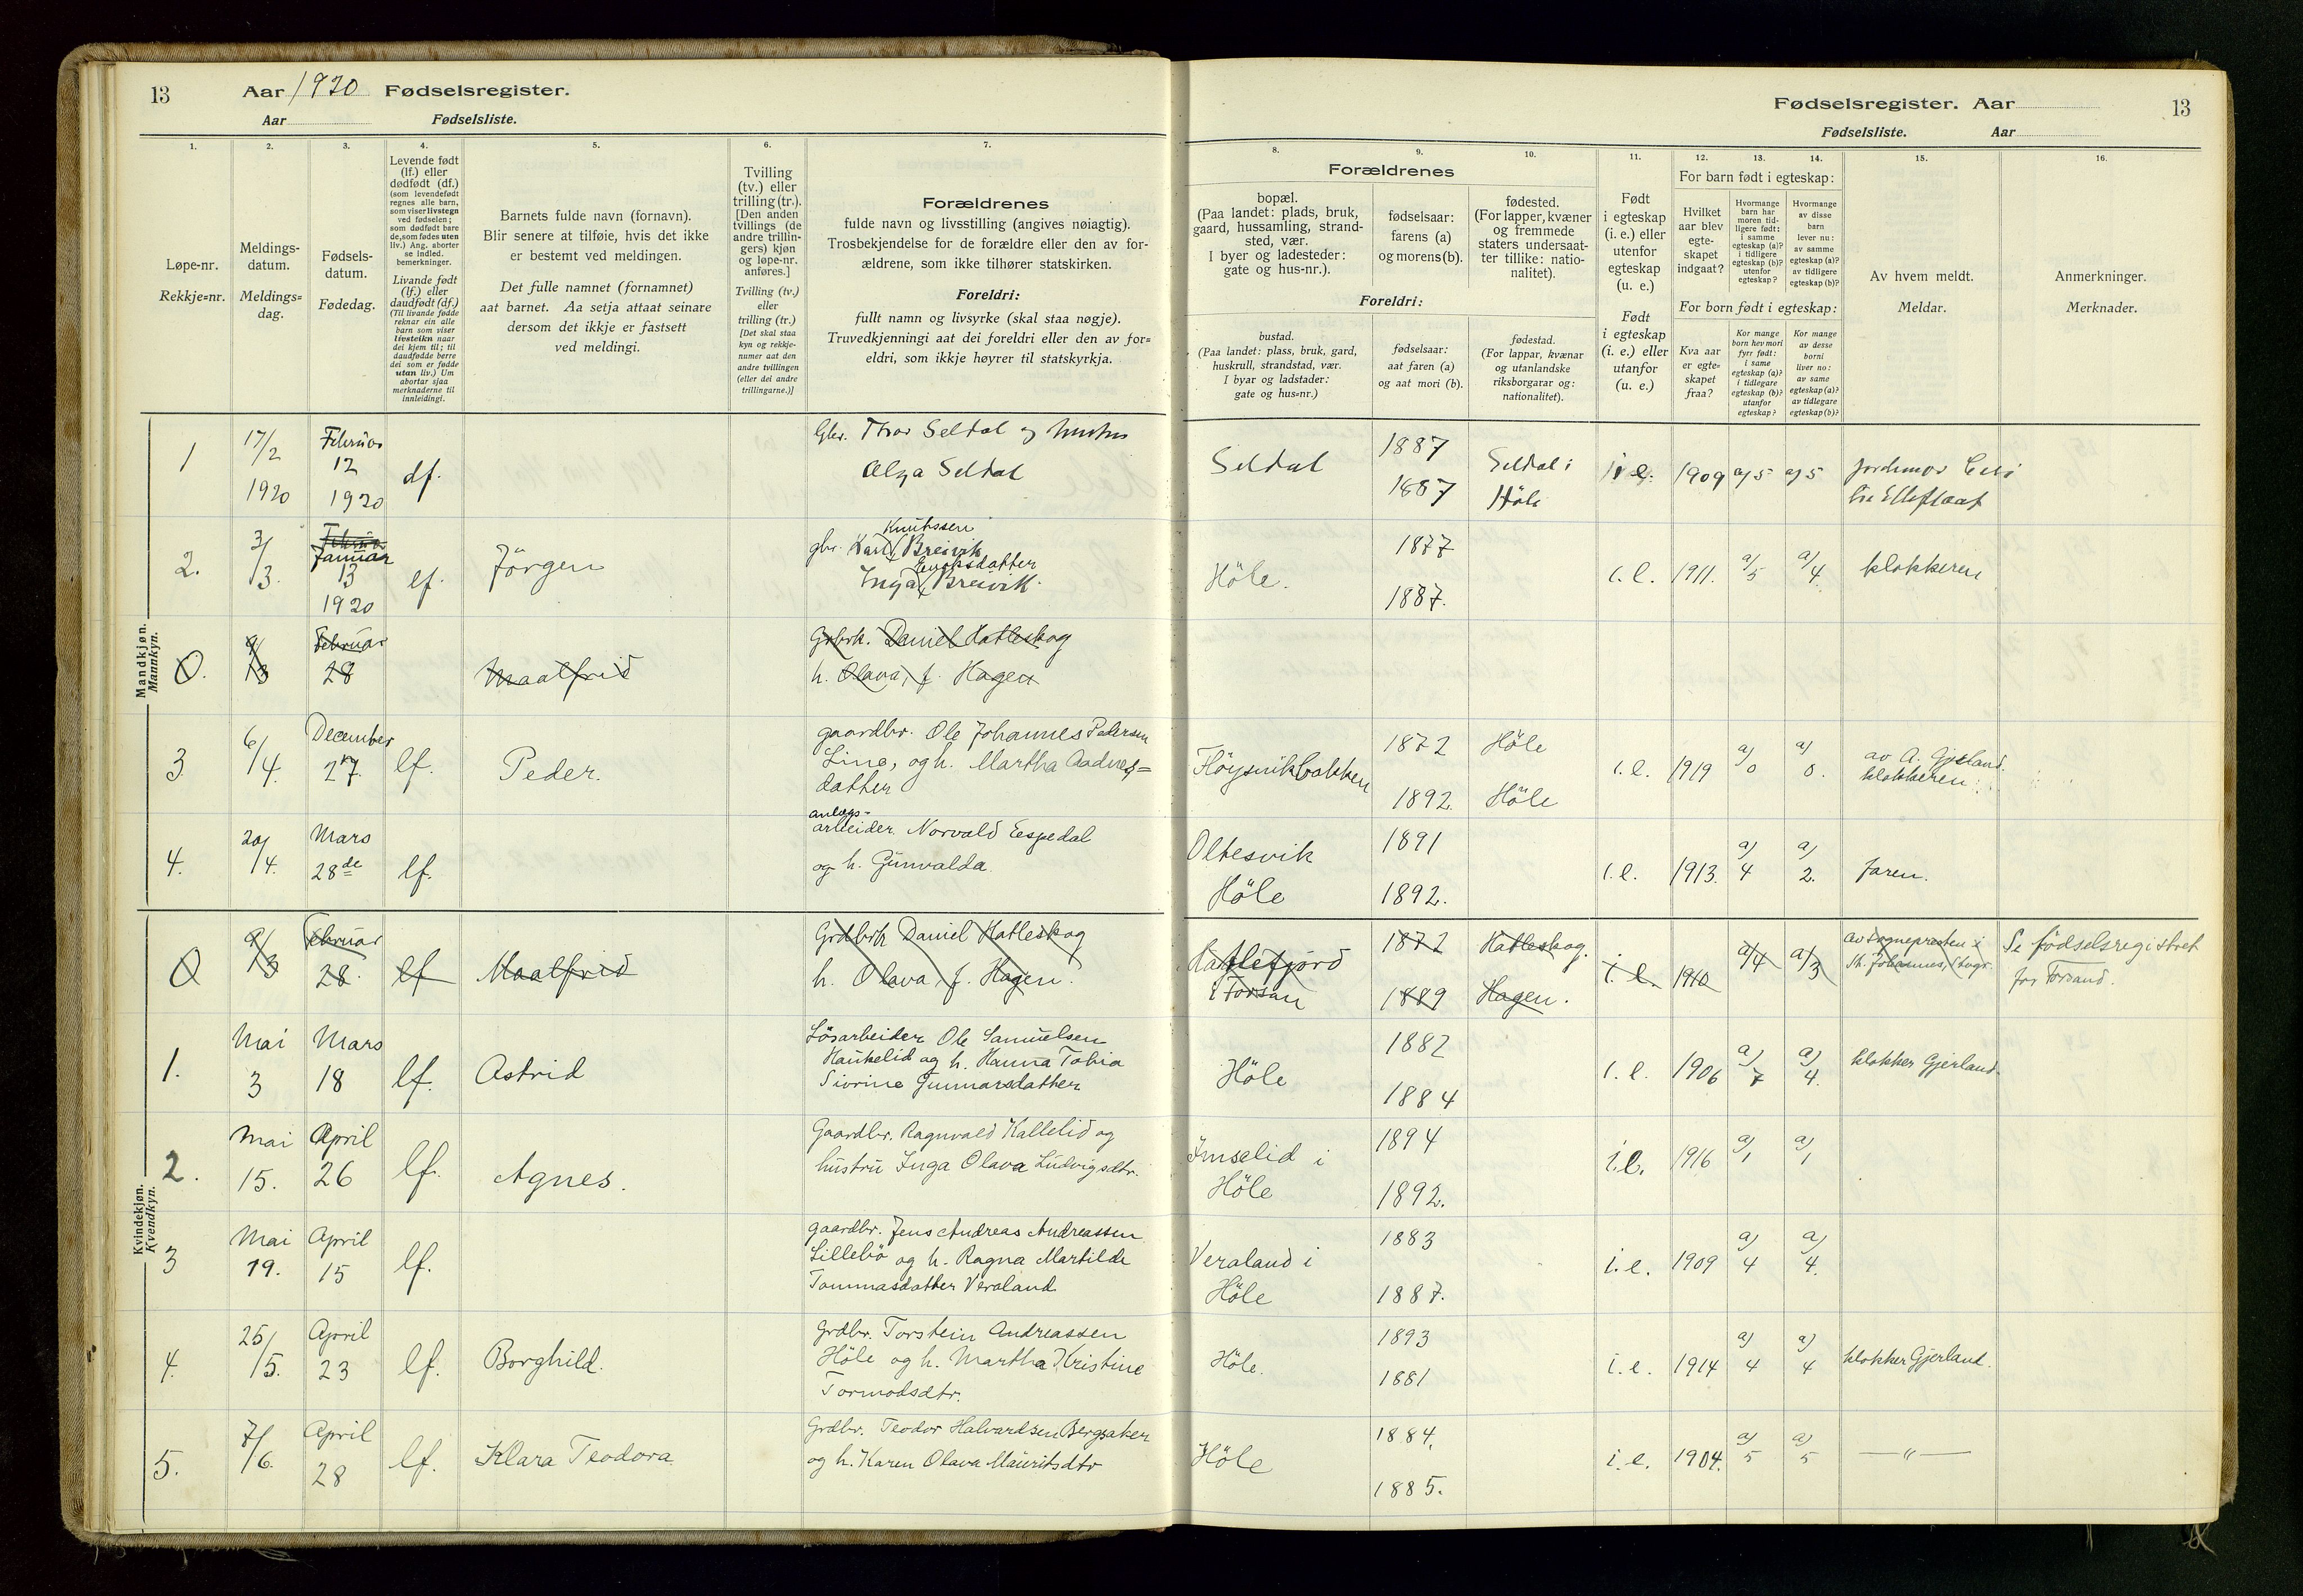 13
Aar 1920 Fødselsregister.
Aar Fødselsliste.
Fødselsregister. Aar
13
Fødselsliste. Aar
1.
2.
3.
4.
5.
6.
7.
8.
9.
10.
11.
12.
13.
14.
15.
16.
Løpe-nr.
Rekkje=nr.
Meldings-
datum.
Meldings=
dag.
Fødsels-
datum.
Fødedag.
Levende født
(lf.) eller
dødfødt (df.)
(som levendefødt
regnes alle barn,
som viser livstegn
ved fødselen;
som dødfødt bare
de, som fødes uten
liv.) Ang. aborter
se indled.
bemerkninger.
Livande født
(lf.) eller
daudfødt (df.)
(Til livande fødde
reknar ein alle
barn som viser
livsteikn naar
dei kjem til; til
daudfødde berre
dei som er fødde
utan liv.) Um
abortar sjaa
merknaderne til
innleidingi.
Barnets fulde navn (fornavn).
Blir senere at tilføie, hvis det ikke
er bestemt ved meldingen.
Det fulle namnet (fornamnet)
aat barnet. Aa setja attaat seinare
dersom det ikkje er fastsett
ved meldingi.
Tvilling
(tv.) eller
trilling (tr.).
[Den anden
tvillings (de
andre trillin-
gers) kjøn
og løpe-nr.
anføres.]
Tvilling (tv.)
eller
trilling (tr.)
[Det skal staa
kyn og rekkje-
numer aat den
andre tvillingen
(eller dei andre
trillingarne.)]
Forældrenes
fulde navn og livsstilling (angives nøiagtig).
Trosbekjendelse for de forældre eller den av for-
ældrene, som ikke tilhører statskirken.
Foreldri:
fullt namn og livsyrke (skal staa nøgje).
Truvedkjenningi aat dei foreldri eller den av for=
eldri, som ikkje høyrer til statskyrkja.
Forældrenes
bopæl.
(Paa landet: plads, bruk,
gaard, hussamling, strand-
sted, vær.
I byer og ladesteder:
gate og hus-nr.).
fødselsaar:
farens (a)
og morens (b).
fødested.
(For lapper, kvæner
og fremmede
staters undersaat-
ter tillike: natio-
nalitet).
Foreldri:
bustad.
(Paa landet: plass, bruk, gard,
huskrull, strandstad, vær.
I byar og ladstader:
gate og hus=nr.)
fødselsaar:
aat faren (a)
og aat mori (b).
fødestad.
(For lappar, kvænar
og utanlandske
riksborgarar og:
nationalitet).
Født
i egteskap
(i. e.) eller
utenfor
egteskap
(u. e.)
Født
i egteskap
(i. e.) eller
utanfor
(u. e.)
For barn født i egteskap:
Hvilket
aar blev
egte-
skapet
indgaat?
Hvormange
barn har
moren tid-
ligere født:
i samme
egteskap (a)?
i tidligere
egteskap (b)?
utenfor
egteskap?
Hvormange
av disse
barn
lever nu:
av samme
egteskap (a)?
av tidligere
egteskap (b)?
For born født i egteskap:
Kva aar
er egte-
skapet
fraa?
Kor mange
born hev mori
fyrr født:
i same
egteskap (a)?
i tidlegare
egteskap (b)?
utanfor
egteskap?
Kor mange
av desse
borni
liver no:
av same
egteskap (a)?
av tidlegare
egteskap (b)?
Av hvem meldt.
Meldar.
Anmerkninger.
Merknader.
Mandkjøn.
Mannkyn.
1 17/2 1920 Februar 12 1920 df.
Gbr. Thor Seldal og hustru
Olga Seldal
Seldal 1887 1887 Seldal i Höle i e. 1909 a/5 a/5 jordmor
2. 3/3. Februar Januar 13 1920 lf. Jörgen
Knutssen
gbr. Karl Breivik
Inga Breivik.
Höle. 1877 1887. i. e. 1911. a/5 a/4. klokkeren
0. 9/3 Februar 28 Maalfrid
Grbrk. Daniel Hatleskog
h. Olava, f. Hagen
3. 6/4. December 27. lf. Peder.
gaardbr. Ole Johannes Pedersen
Line, og h. Martha Aadnes=
datter
Höigsvikbakken 1872 1892. Höle Höle i. e. 1919 a/0 a/0. av A. Gjerland.
klokkeren
4. 20/4. Mars 28de lf.
anlegs-
arbeider Norvald Eespedal
og h. Gunvalda
Oltesvik
Höle 1891 1892. i. e. 1913. a/4 a/2. faren.
Kvindekjøn.
Kvendkyn.
0 9/3 Februar 28. lf Maalfrid
Grdbrk Daniel Hatleskog
h. Olava, f. Hagen.
i Forsan 1872 1889 Hatleskog. Hagen. i. e. 1910 a/4 a/3 av Sognepresten i
St. Johannes, Stvgr.
Se födselsregistret
for Forsand.
1. Mai 3 Mars 18 lf. Astrid
Lösarbeider Ole Samuelsen
Haukelid og h. Hanna Tobia
Sivrine Gunnarsdatter
Höle 1882 1884 i. e. 1906 a/7 a/4. klokker Gjerland.
2. Mai 15. April 26 lf. Agnes.
Gaardbr. Ragnvald Kallelid og
hustru Inga Olava Ludvigsdtr.
Imselid i
Höle 1894 1892. i. e. 1916 a/1 a/1
3 Mai 19. April 15 lf.
gaardbr. Jens Andreas Andreassen
Lillebö og h. Ragna Martilde
Tommasdatter Veraland
Veraland i
Höle 1883 1887. i. e. 1909 a/4 a/4.
4. 25/5. April 23 lf. Borghild.
Grdbr. Torstein Andreassen
Höle og h. Martha Kristine
Tormodsdtr.
Höle. 1893 1881 i. e. 1914 a/4 a/4 klokker Gjerland.
5. 7/6. April 28 lf. Klara Teodora
Grdbr. Teodor Halvardsen Bergsaker
og h. Karen Olava Mauritsdtr
Höle 1884. 1885. i. e. 1904. a/5 a/5 —〃—